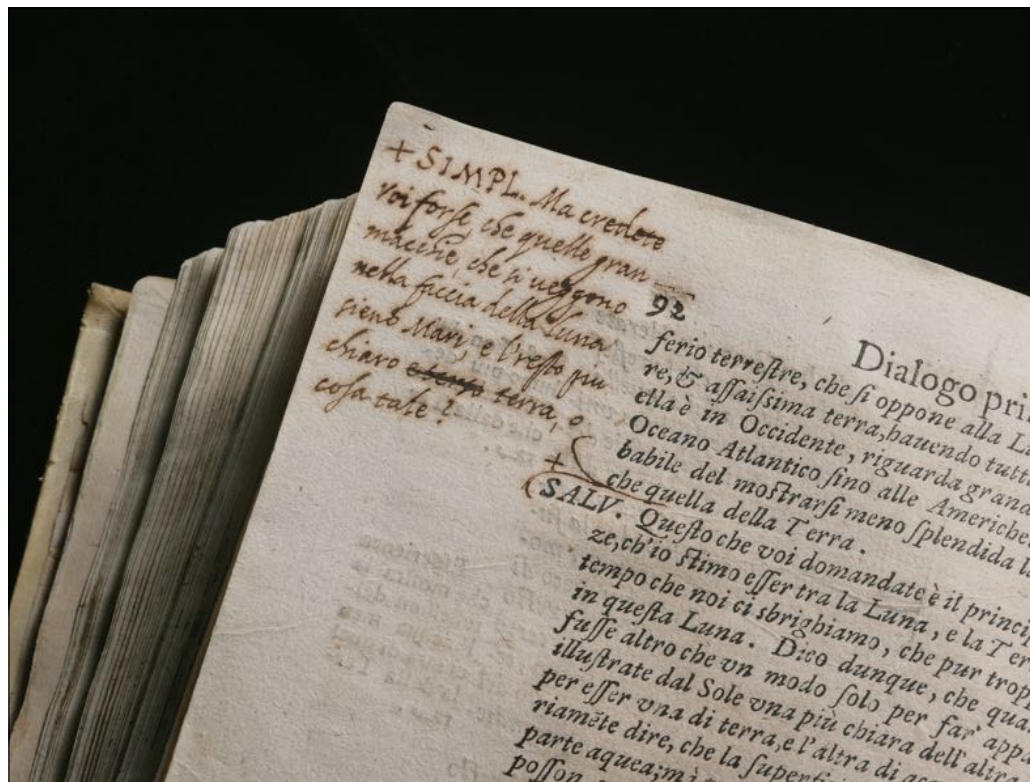 + SIMPL. Ma credete
voi forse, che quelle gran
macchie, che si veggono
nella faccia della Luna
sieno Mari, e l'resto piu
chiaro terra, o
cosa tale?
92
Dialogo pri
ferio terrestre, che si oppone alla Lu
re, & assaissima terra, hauendo tutt
ella è in Occidente, riguarda grand
Oceano Atlantico sino alle Americhe
babile del mostrarsi meno splendida l
che quella della Terra.
+
SALV. Questo che voi domandate è il princi
ze, ch'io stimo esser tra la Luna, e la Terr
tempo che noi ci sbrighiamo, che pur trop
in questa Luna. Dico dunque, che qua
fusse altro che vn modo solo per far' appa
illustrate dal Sole vna più chiara dell'altra
per esser vna di terra, e l'altra di
riamēte dire, che la
parte aquea; mà
posson